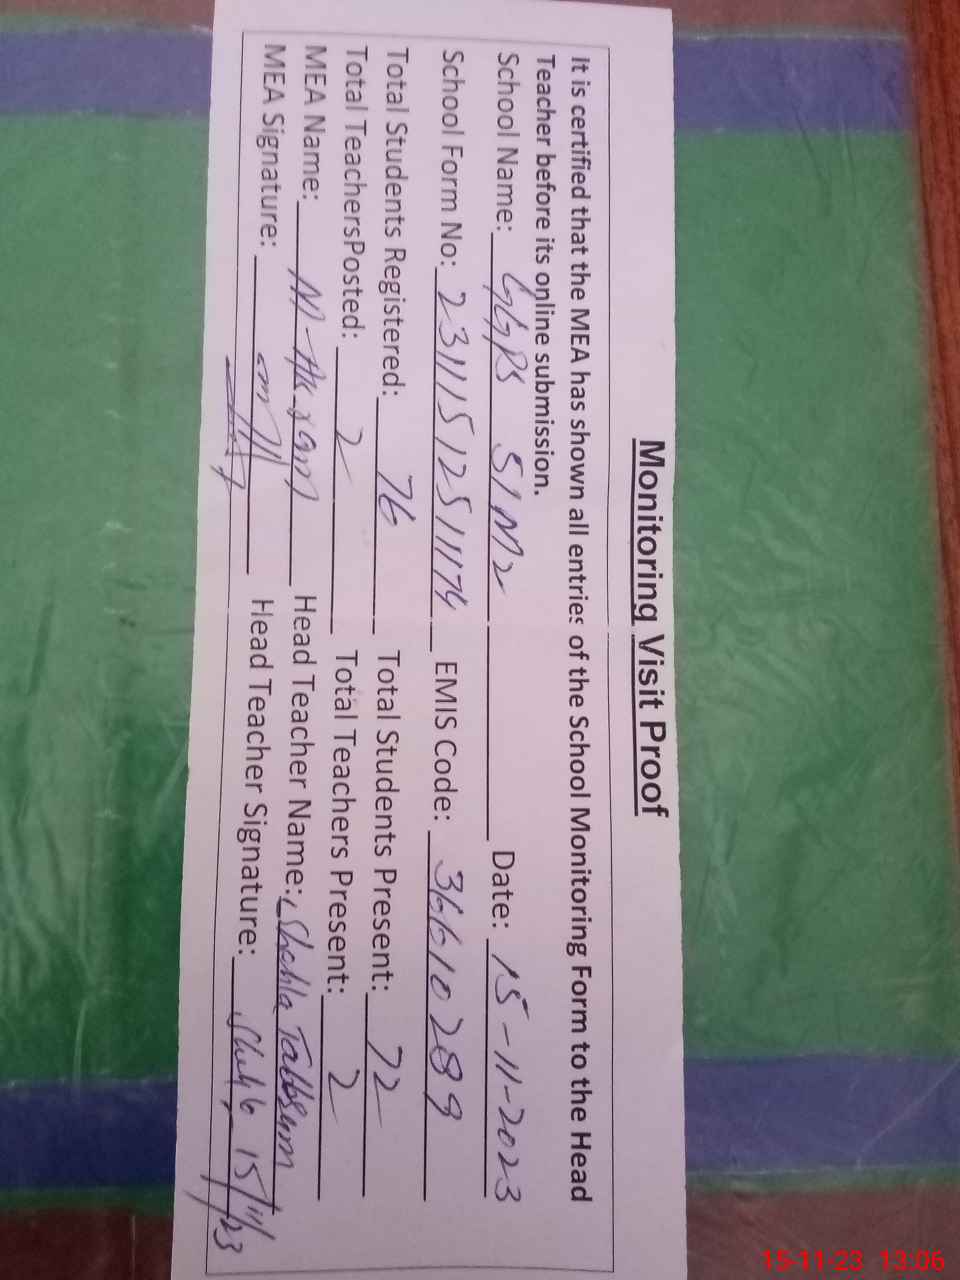 Monitoring Visit Proof
It is certified that the MEA has shown all entries of the School Monitoring Form to the Head
Teacher before its online submission.
School Name: GGPS 51 M2 Date: 15-11-2023
School Form No: 231115125111174 EMIS Code: 36610289
Total Students Registered: 76 Total Students Present: 72
Total TeachersPosted: 2 Total Teachers Present: 2
MEA Name: Head Teacher Name: Shahla Tabbsum
MEA Signature: Head Teacher Signature: 15/11/23
15-11-23 13:06